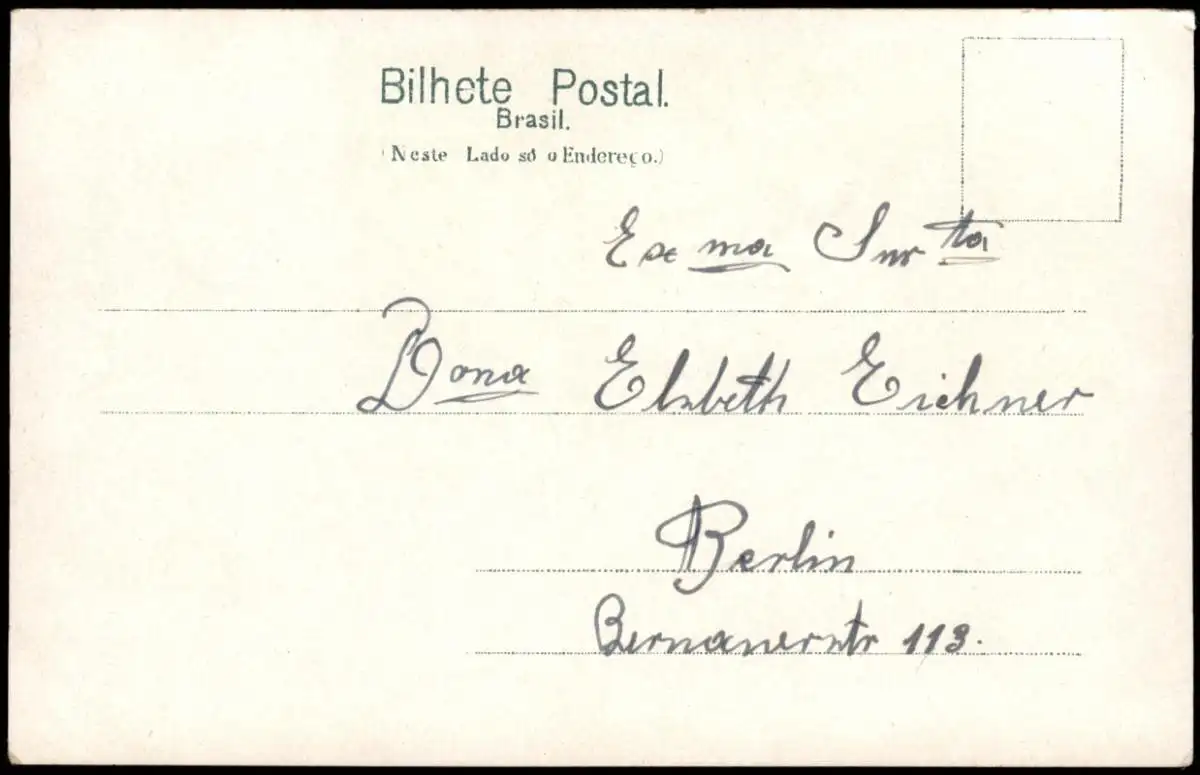 Bilhete Postal.
Brasil.
(Neste Lado só o Endereço.)
Exma Snrta
Dona Elsbeth Eichner
Berlin
Bernauerstr 113.